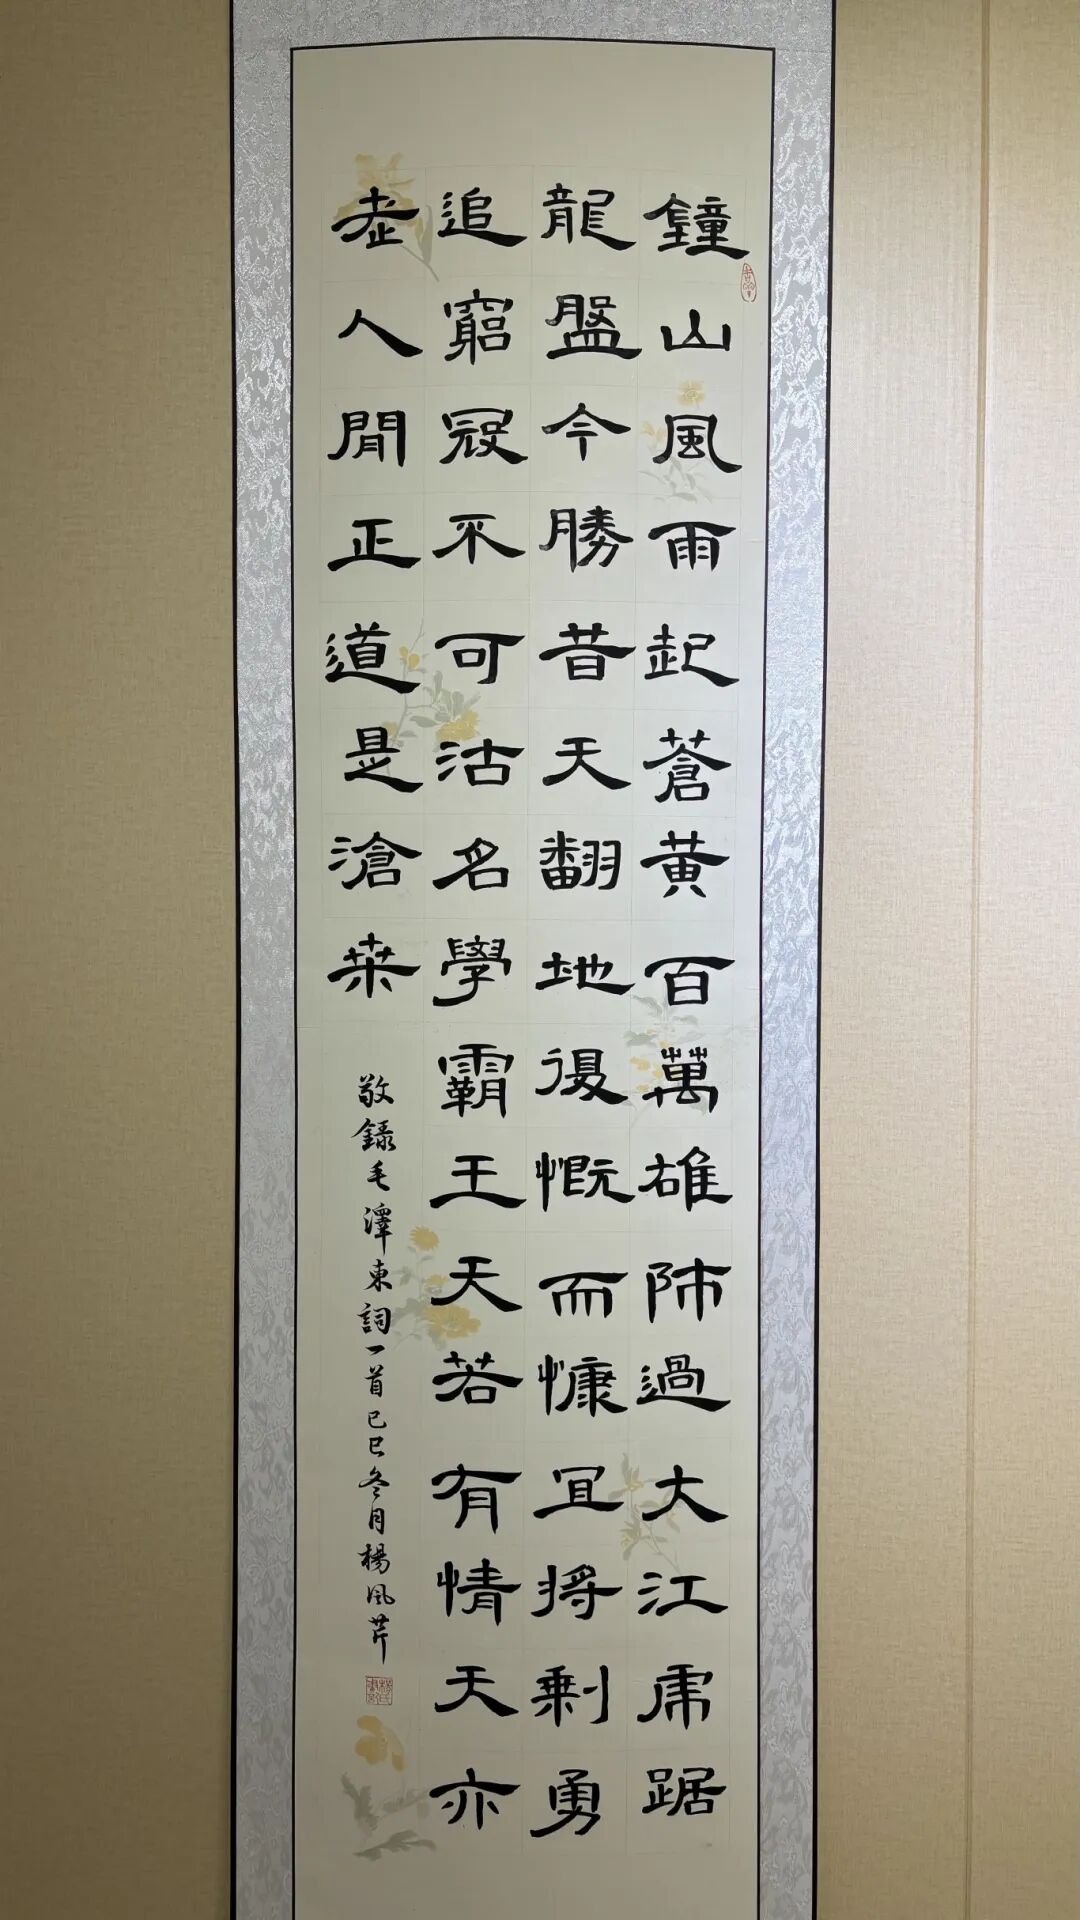 鐘山風雨起蒼黃百萬雄師過大江虎踞
龍盤今勝昔天翻地復慨而慷宜將剩勇
追窮寇不可沽名學霸王天若有情天亦
老人間正道是滄桑
敬錄毛澤東詞一首己巳冬月楊風芹